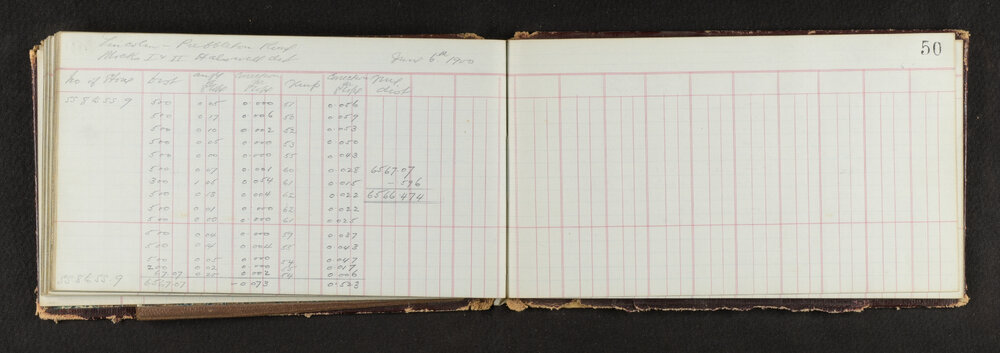 Lincoln - Road
Blocks I & II Halswell dist June 6th 1900
50
No of Dist angle Correction Temp Correction
dist
558 to 55.9 500 0.05 0.000 51 0.056
500 0.17 0.006 50 0.059
500 0.10 0.002 52 0.053
500 0.05 0.000 53 0.050
500 0.00 0.000 55 0.043
500 0.07 0.001 60 0.028 6567.07
300 1.05 0.054 61 0.015 - 596
500 0.13 0.004 62 0.022 6566.474
500 0.01 0.000 62 0.022
500 0.00 0.000 61 0.025
500 0.04 0.000 59 0.037
500 0.14 0.004 55 0.043
500 0.05 0.000 54 0.047
200 0.02 0.000 0.017
67.07 0.002 54 0.006
558 to 55.9 6567.07 - 0.073 0.523